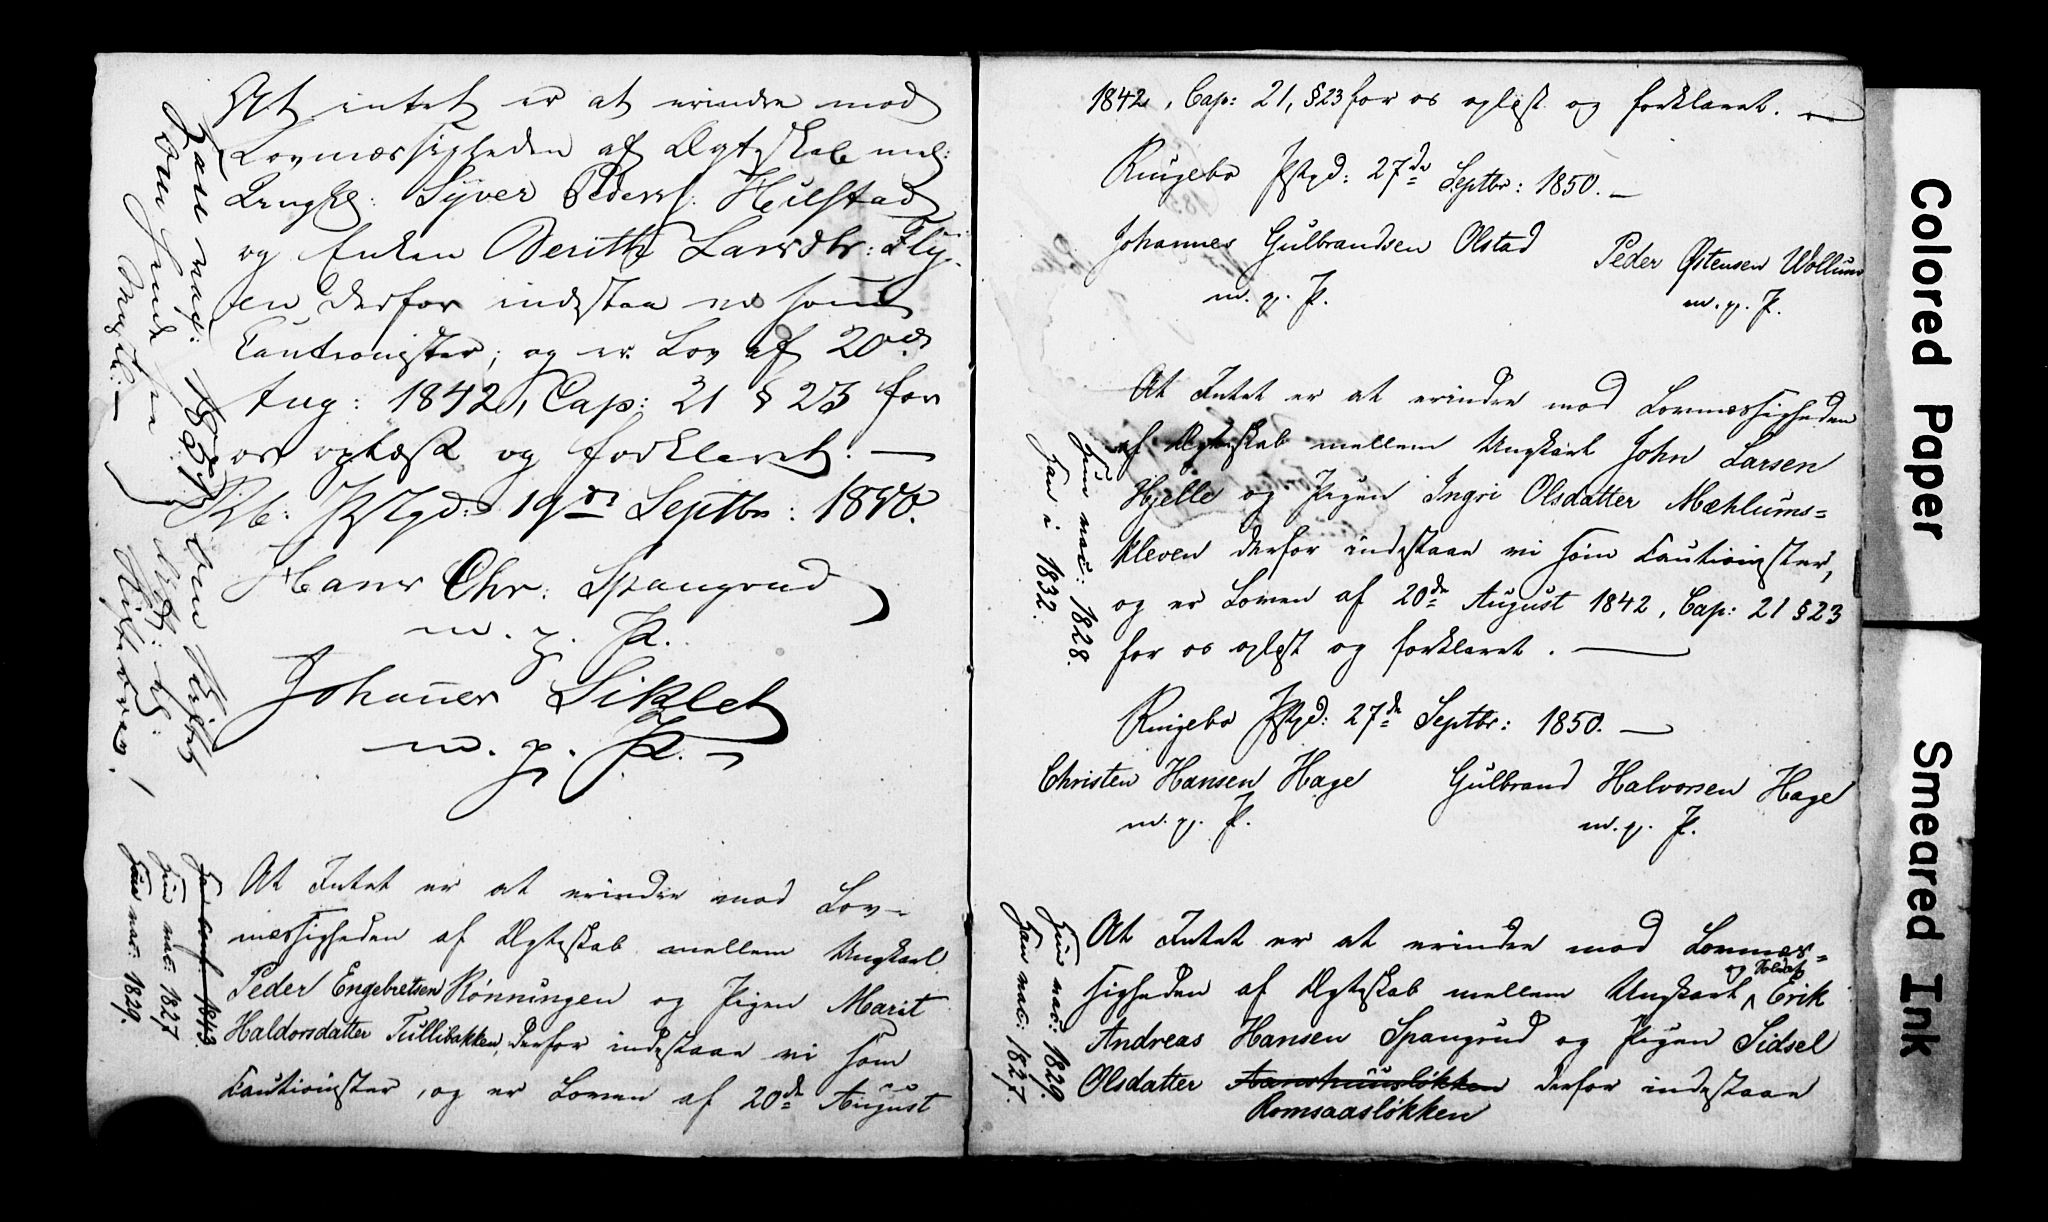 At intet er at erindre mod
Lovmæssigheden af Ægteskab mel:
Ungkl: Syver Peders. Hulstad
og Enken Berithe Larsdtr: Fly-
en, derfor indestaa vi som
Cautionister; og er Lov af 20de
Aug: 1842, Cap: 21 § 23 for
os oplæst og forklaret. —
Rb: Pstgd: 19de Septbr: 1850.
Hans Chr: Spangrud
m. p. P.
Johannes Siklet
m. p. P.
Han vac: 1851
som
At Intet er at erindre mod Lov-
mæssigheden af Ægteskab mellem Ungkarl
Peder Engebretsen Rönningen og Pigen Marit
Haldorsdatter Tullibakken, derfor indestaae vi som
Cautionister, og er Loven af 20de August
Han conf. 1843.
Hun vac: 1827
Han vac: 1829.
1842, Cap: 21, § 23 for os oplæst og forklaret. —
Ringebo Pstgd: 27de Septbr: 1850. —
Johannes Gulbrandsen Olstad
m. p. P.
Peder Østensen Wollum
m. p. P.
At Intet er at erindre mod Lovmæssigheden
af Ægteskab mellem Ungkarl John Larsen
Hjelle og Pigen Ingri Olsdatter Mæhlums=
kleven derfor indestaae vi som Cautionister,
og er Loven af 20de August 1842, Cap: 21 § 23
for os oplæst og forklaret. —
Hun vac: 1828.
Han i 1832.
Ringebo Pstgd: 27de Septbr: 1850. —
Christen Hansen Hage
m. p. P.
Gulbrand Halvorsen Hage
m. p. P.
At Intet er at erindre mod Lovmæs=
sigheden af Ægteskab mellem Ungkarl og Soldat Erik
Andreas Hansen Spangrud og Pigen Sidsel
Olsdatter Aanshuusløkken derfor indestaae
Romsaasløkken
Hun vac: 1829.
Han vac: 1827.
Colored Paper
Smeared Ink